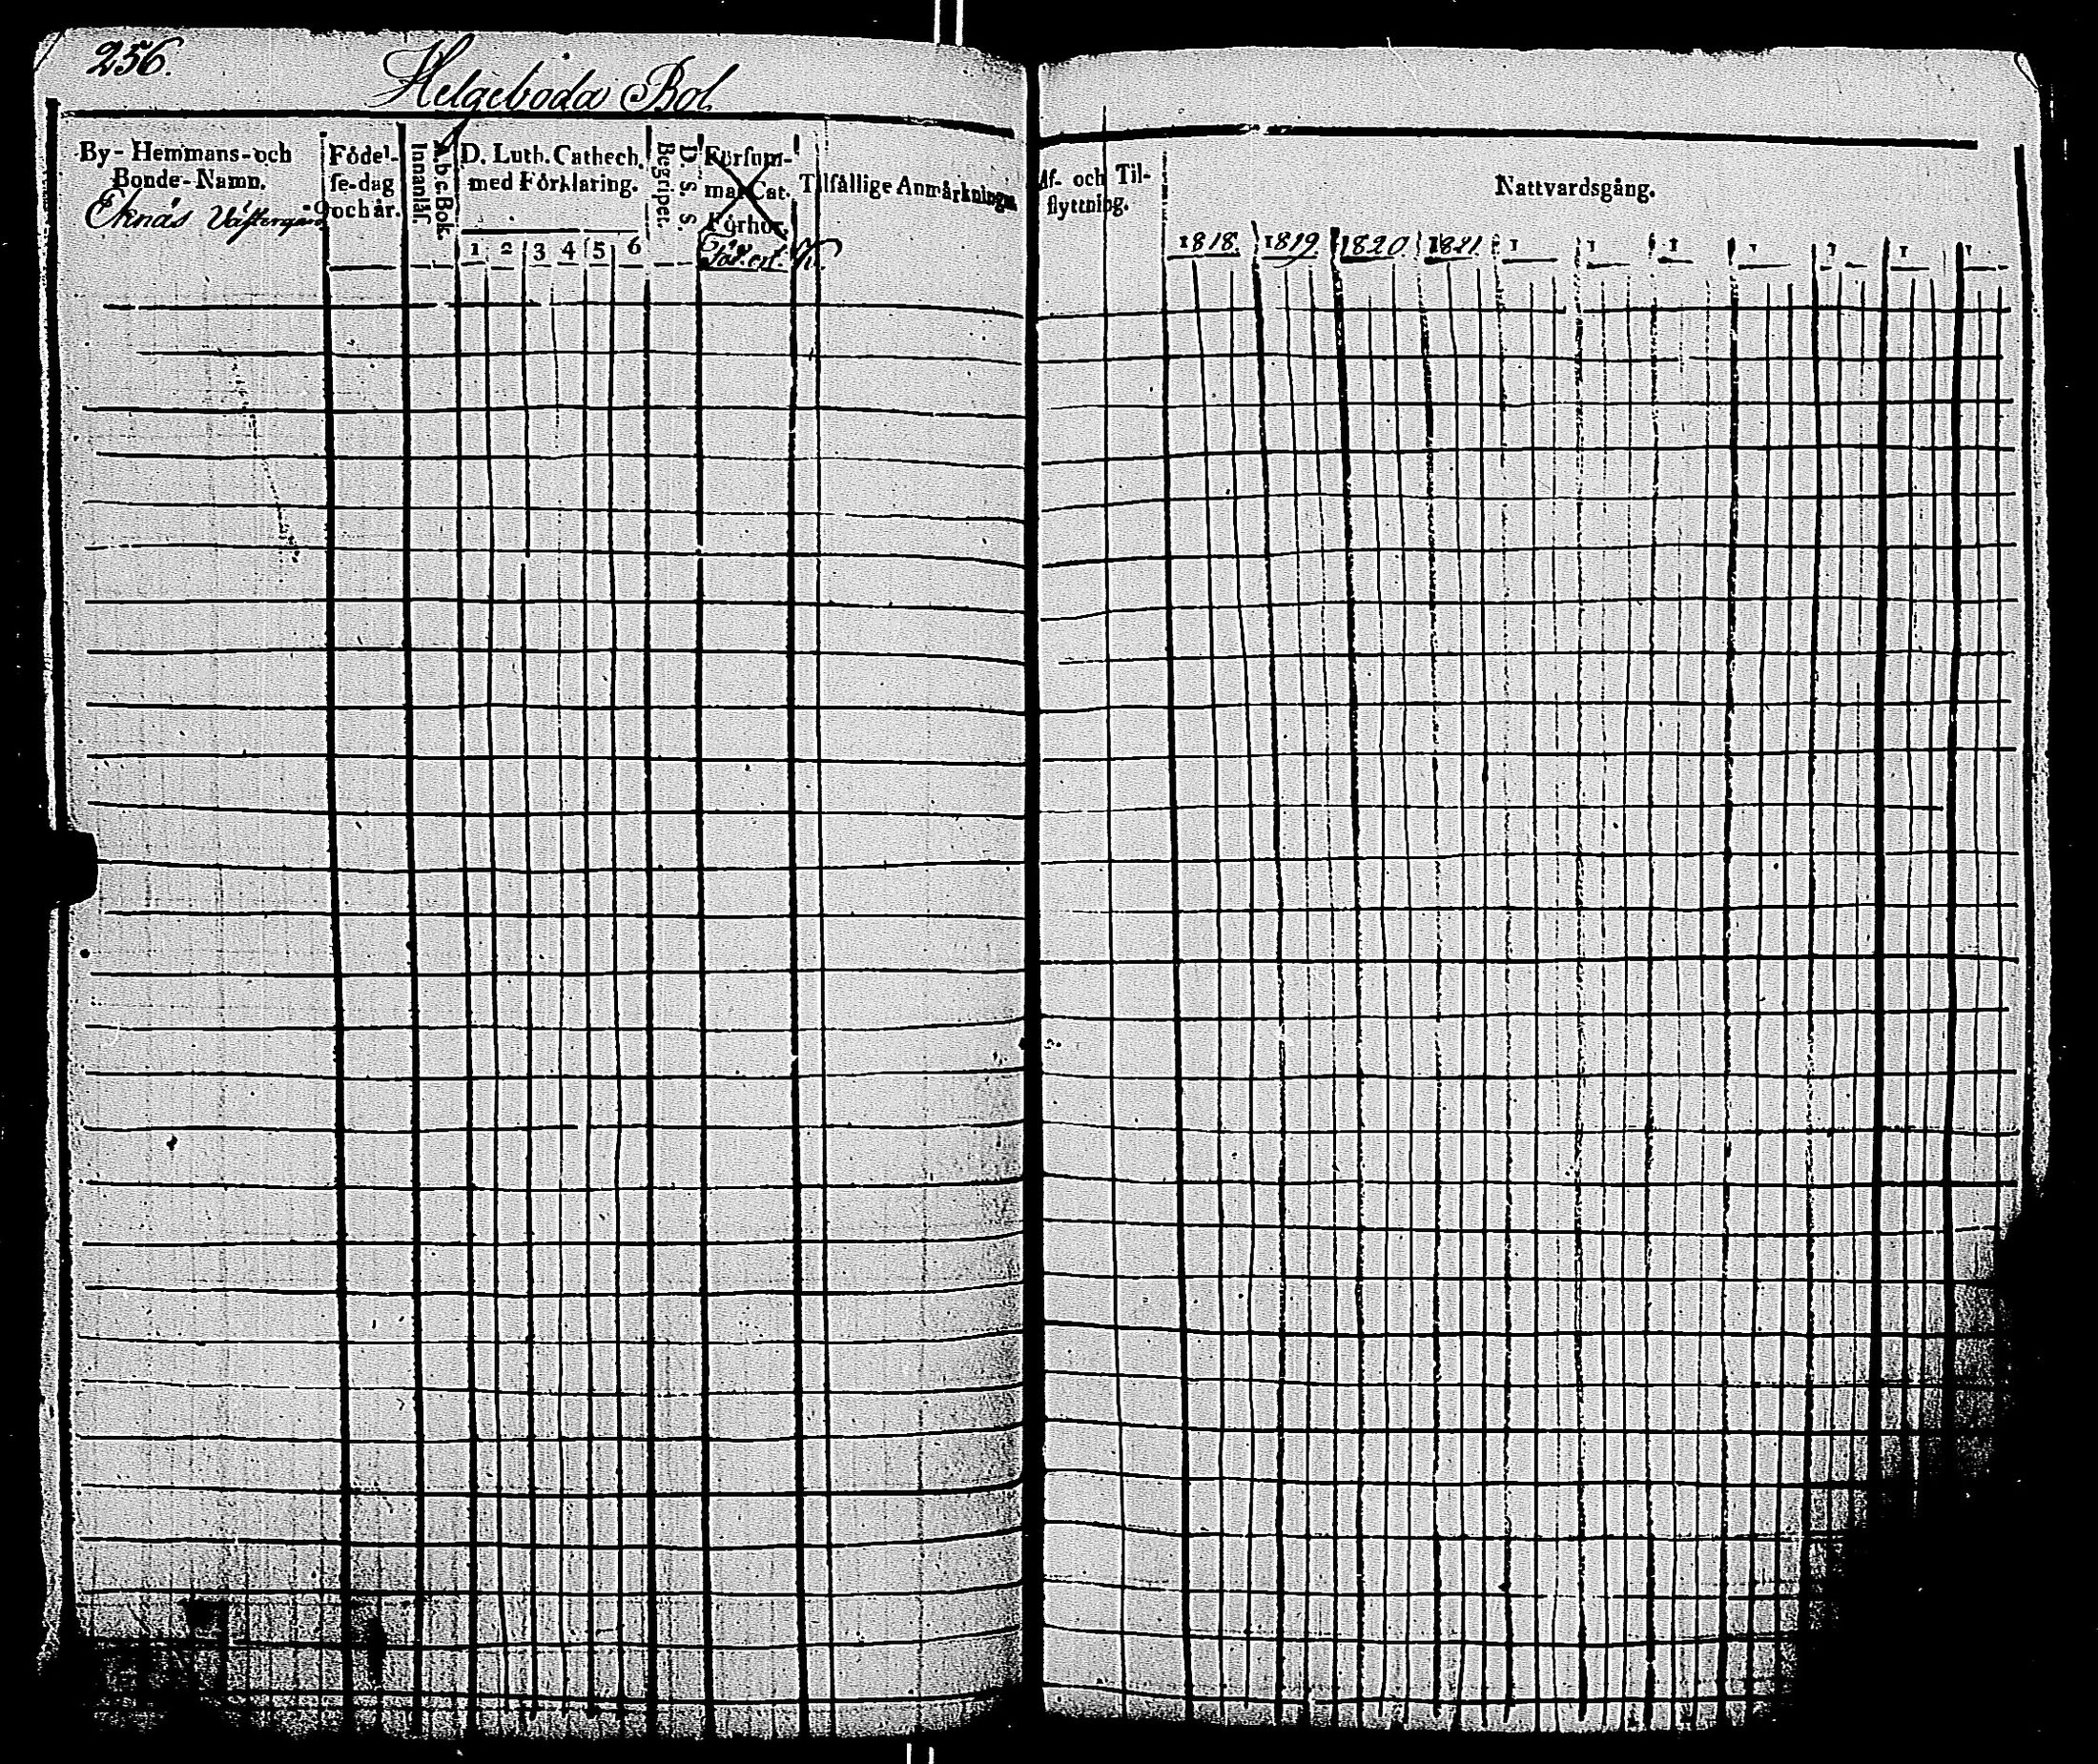 256.
Helgeboda Bol.
By- Hemmans- och
Bonde- Namn.
Eknäs Västergård
Födel-
se-dag
och år.
Innanläs.
A.b.c.Bok.
D. Luth. Cathech.
med Förklaring.
1 2 3 4 5 6
Begripet.
D. S. S.
Försum-
mat Cat.
Förhör.
Tilfällige Anmärkningar
Af- och Til-
flyttning.
Nattvardsgång.
1818. 1819. 1820. 1821. 1 1 1 1 1 1 1